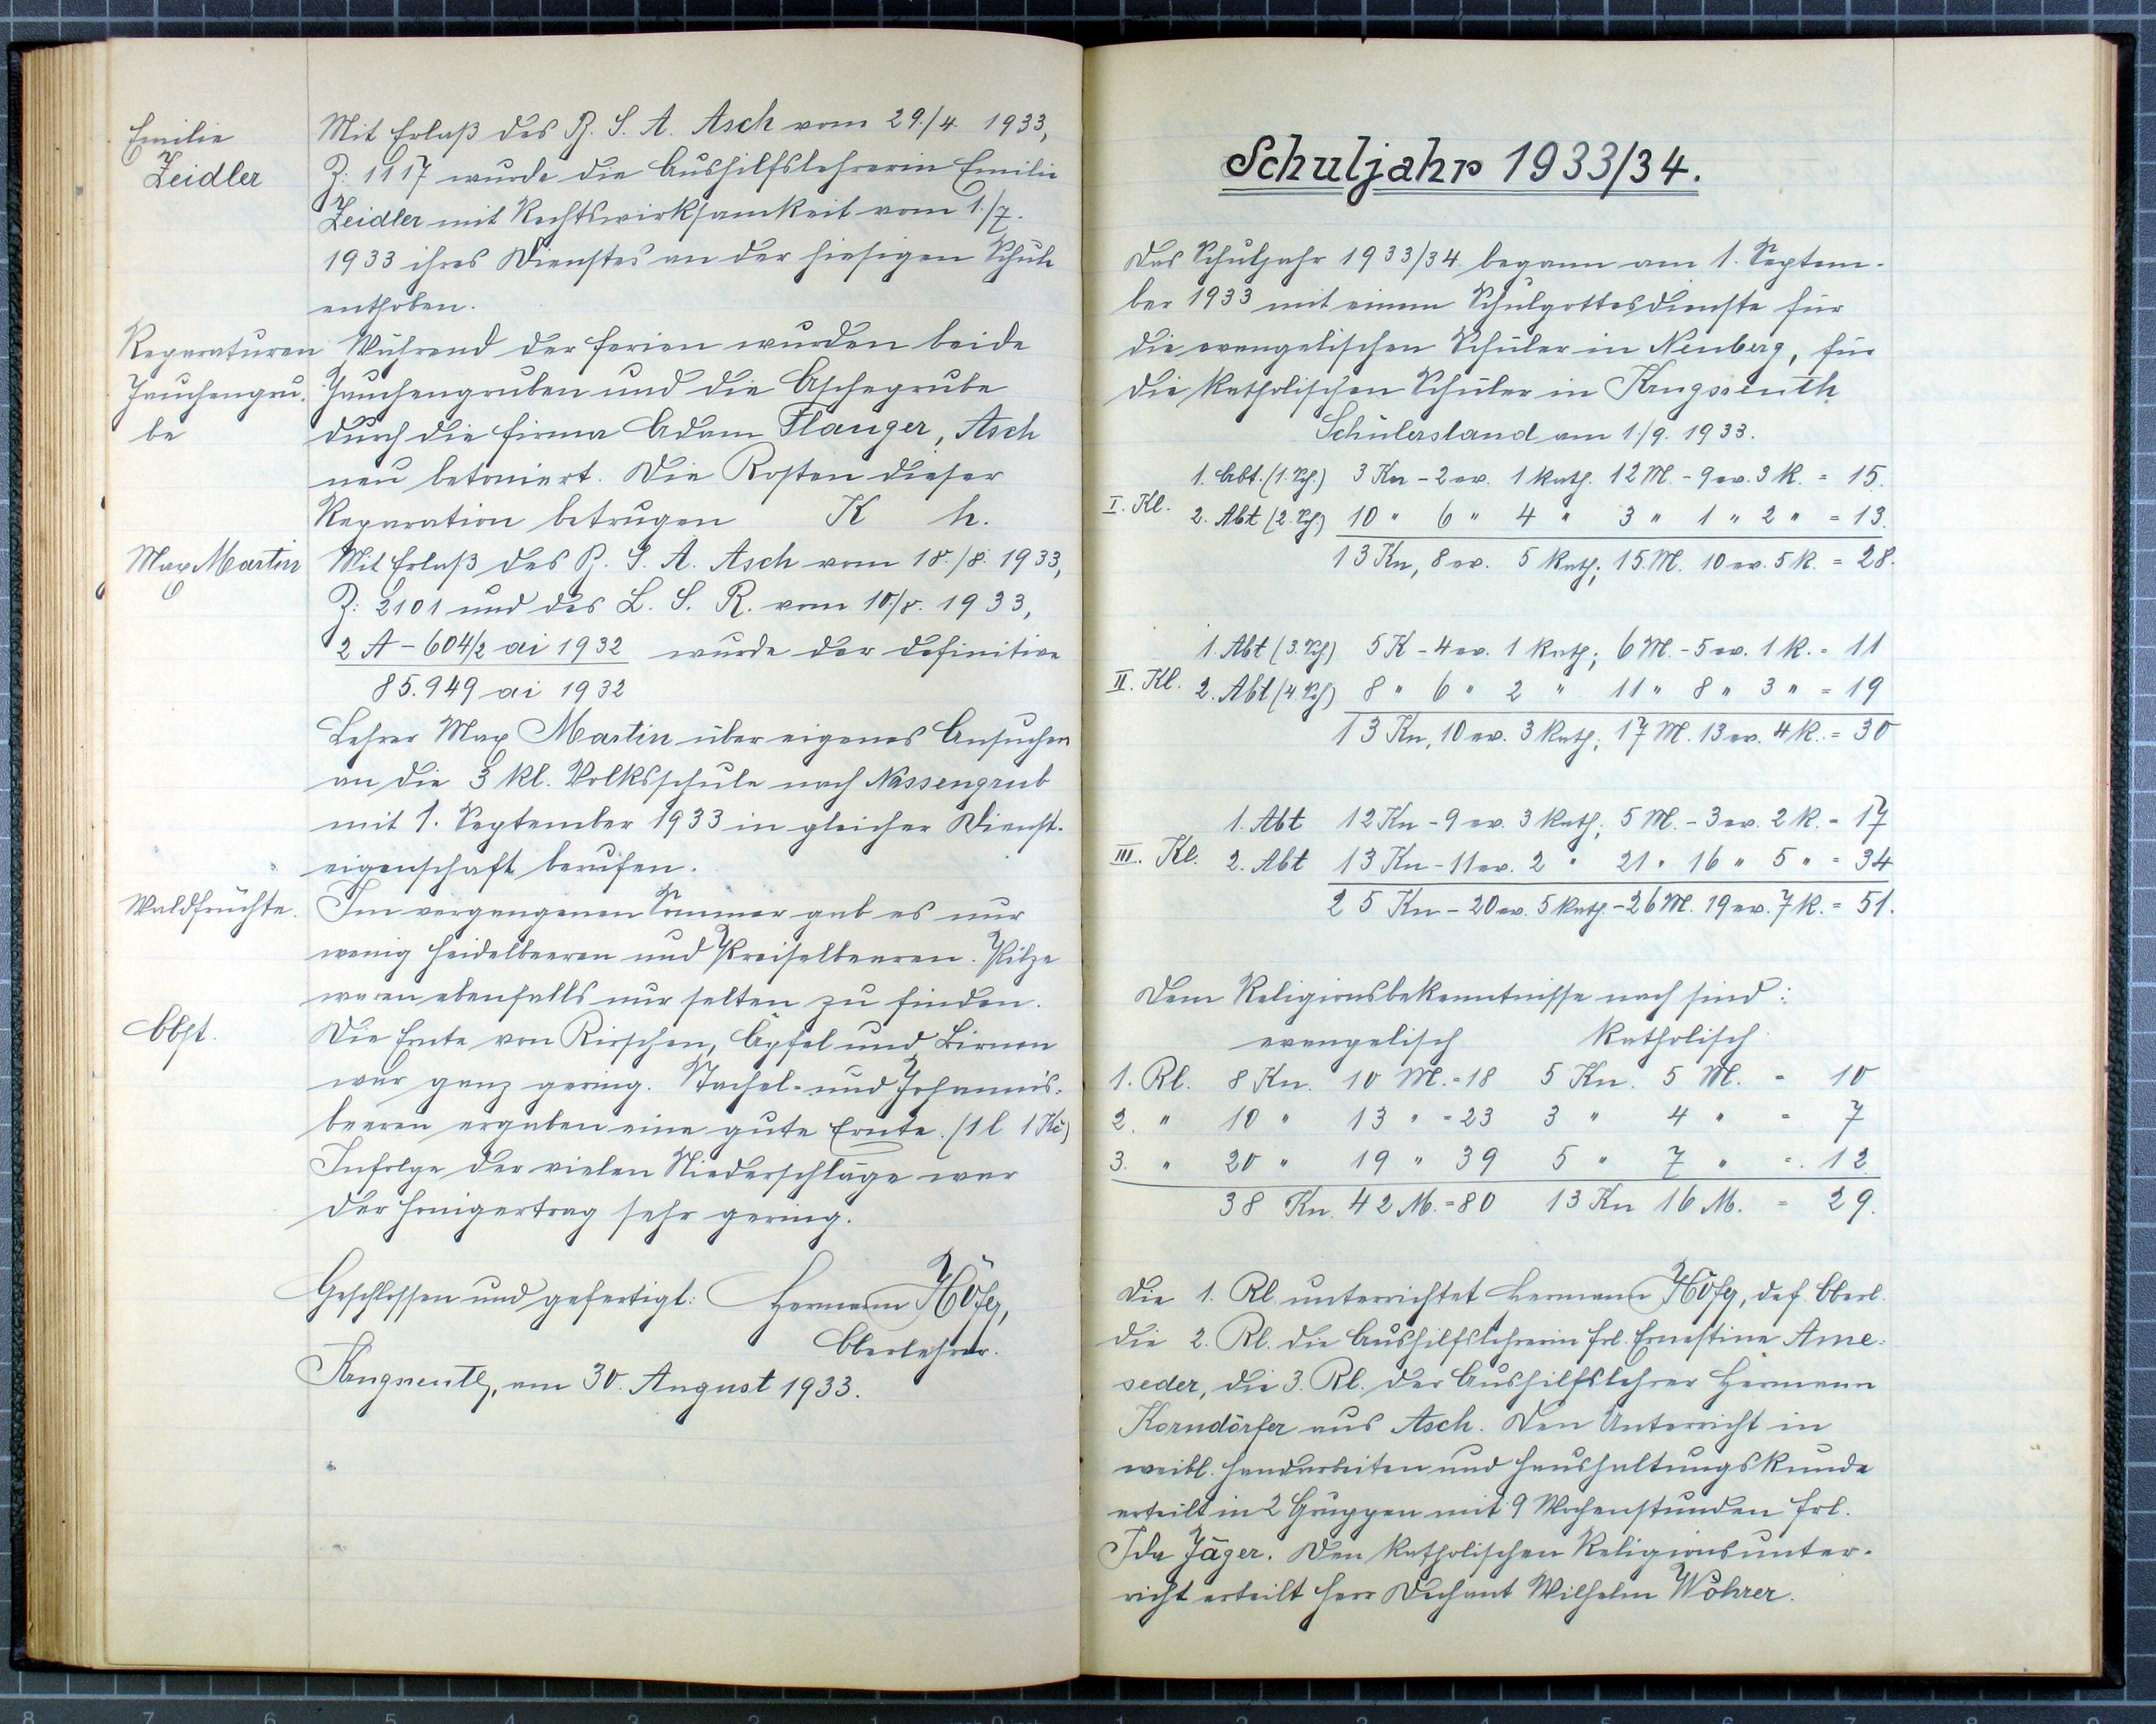 Emilie
Zeidler
Mit Erlaß des B. S. A. Asch vom 29./4. 1933,
Z: 1117 wurde die Aushilfslehrerin Emilie
Zeidler mit Rechtswirksamkeit vom 1./7.
1933 ihres Dienstes an der hiesigen Schule
enthoben.
Reparaturen
Jauchengru-
be
Während der Ferien wurden beide
Jauchengruben und die Aschegrube
durch die Firma Adam Flauger, Asch
neu betoniert. Die Kosten dieser
Reparation betrugen K h.
Max Martin
Mit Erlaß des B. S. A. Asch vom 18./8. 1933,
Z: 2101 und des L. S. R. vom 10./8. 1933,
2 A - 604/2 ai 1932 wurde der definitive
85.949 ai 1932
Lehrer Max Martin über eigenes Ansuchen
an die 3 kl. Volksschule nach Nassengrub
mit 1. September 1933 in gleicher Dienst-
eigenschaft berufen.
Waldfrüchte.
Im vergangenen Sommer gab es nur
wenig Heidelbeeren und Preiselbeeren. Pilze
waren ebenfalls nur selten zu finden.
Obst.
Die Ernte von Kirschen, Äpfel und Birnen
war ganz gering. Stachel- und Johannis-
beeren ergaben eine gute Ernte. (1 l 1 Kč)
Infolge der vielen Niederschläge war
der Honigertrag sehr gering.
Geschlossen und gefertigt: Hermann Höfg,
Oberlehrer.
Krugsreuth, am 30. August 1933.
Schuljahr 1933/34.
Das Schuljahr 1933/34 begann am 1. Septem-
ber 1933 mit einem Schulgottesdienste für
die evangelischen Schüler in Neuberg, für
die katholischen Schüler in Krugsreuth
Schülerstand am 1./9. 1933.
1. Abt. (1. Sch.) 3 Kn - 2 ev. 1 kath. 12 M. - 9 ev. 3 k. = 15.
I. Kl.
2. Abt (2. Sch.) 10 " 6 " 4 " 3 " 1 " 2 " = 13.
13 Kn, 8 ev. 5 kath; 15 M. 10 ev. 5 k. = 28.
1. Abt (3. Sch) 5 K - 4 ev. 1 kath; 6 M. - 5 ev. 1 k. = 11
II. Kl.
2. Abt (4. Sch) 8 " 6 " 2 " 11 " 8 " 3 " = 19
13 Kn, 10 ev. 3 kath; 17 M. 13 ev. 4 k. = 30
1. Abt 12 Kn - 9 ev. 3 kath; 5 M. - 3 ev. 2 k. = 17
III. Kl.
2. Abt 13 Kn - 11 ev. 2 " 21 " 16 " 5 " = 34
25 Kn - 20 ev. 5 kath. - 26 M. 19 ev. 7 k. = 51.
Dem Religionsbekenntnisse nach sind:
evangelisch katholisch
1. Kl. 8 Kn. 10 M. = 18 5 Kn. 5 M. = 10
2. " 10 " 13 " = 23 3 " 4 " = 7
3. " 20 " 19 " 39 5 " 7 " = 12
38 Kn. 42 M. = 80 13 Kn 16 M. = 29.
Die 1. Kl. unterrichtet Hermann Höfg, def. Oberl.
die 2. Kl. die Aushilfslehrerin Frl. Ernestine Ame-
seder, die 3. Kl. der Aushilfslehrer Hermann
Korndörfer aus Asch. Den Unterricht in
weibl. Handarbeiten und Haushaltungskunde
erteilt in 2 Gruppen mit 9 Wochenstunden Frl.
Ida Jäger. Den katholischen Religionsunter-
richt erteilt Herr Dechant Wilhelm Wöhrer.
8 7 6 5 4 3 2 1 0 1 2 3 4 5 6 7 8 9